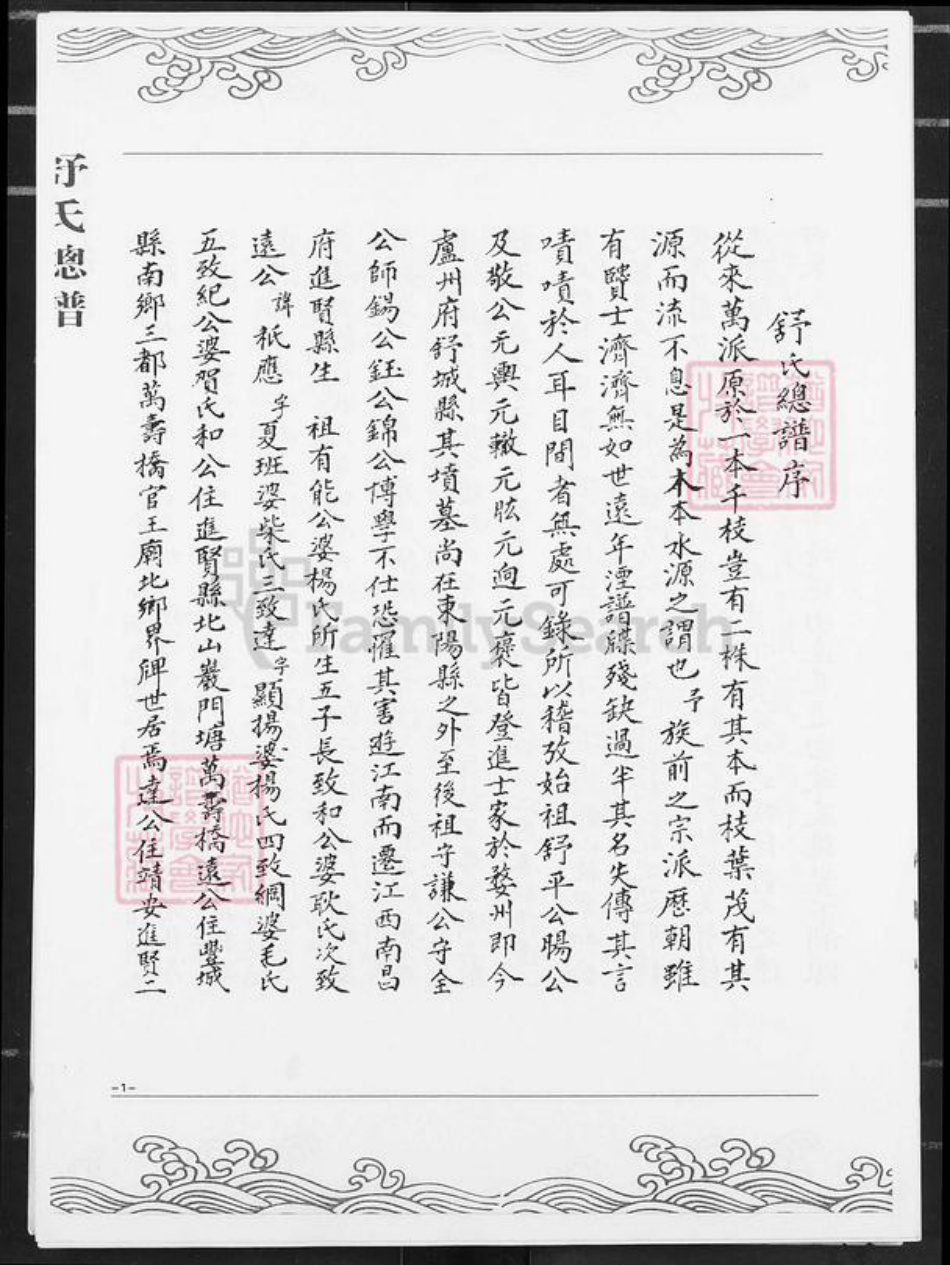 舒氏總譜序
從來萬派原於一本千枝豈有二株有其本而枝葉茂有其
源而流不息是為木本水源之謂也予族前之宗派歷朝雖
有賢士濟濟無如世遠年湮譜牒殘缺過半其名失傳其言
嘖嘖於人耳目間者無處可錄所以稽攷始祖舒平公暘公
及敬公元輿元轍元肱元逈元褒皆登進士家於婺州即今
盧州府舒城縣其墳墓尚在東陽縣之外至後祖守謙公守全
公師錫公鈺公錦公博學不仕恐罹其害遊江南而遷江西南昌
府進賢縣生 祖有能公婆楊氏所生五子長致和公婆耿氏次致
遠公諱秖應字夏班婆柴氏三致達字顯揚婆楊氏四致綱婆毛氏
五致紀公婆賀氏和公住進賢縣北山巖門塘萬壽橋遠公住豐城
縣南鄉三都萬壽橋官王廟北鄉界牌世居焉達公住靖安進賢二
舒氏總普
-1-
FamilySearch